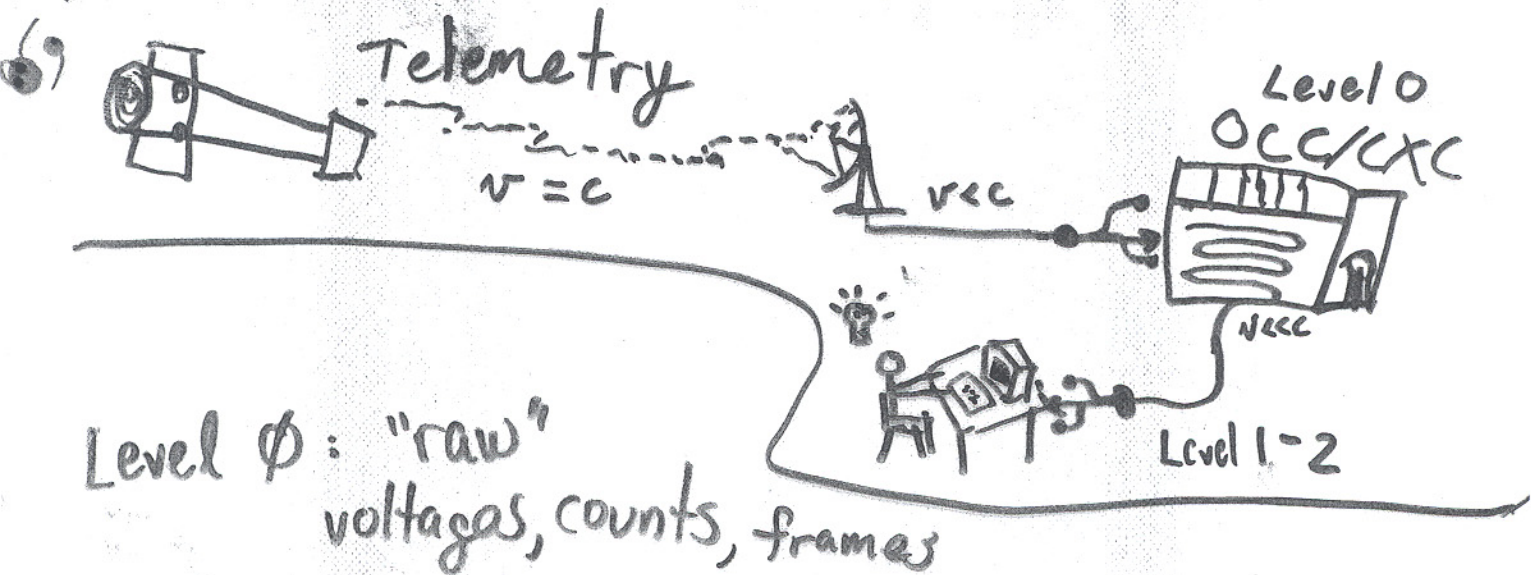 Telemetry
v = c
v<c
Level 0
OCC/CXC
v<<c
Level 1-2
Level Ø: "raw"
voltages, counts, frames